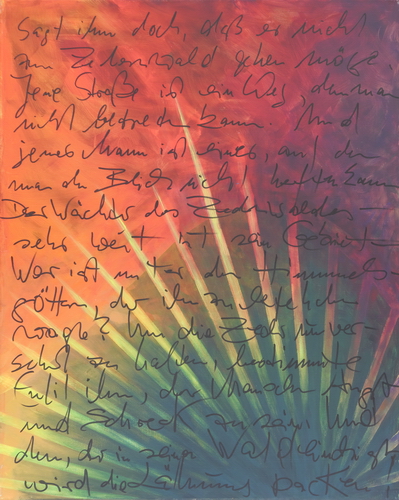 Sagt ihm doch, daß er nicht
zum Zedernwald gehen möge
Jene Straße ist ein Weg, den man
nicht betreten kann. Und
jener Mann ist einer, auf den
man den Blick nicht heften kann
Der Wächter des Zedernwaldes –
sehr weit ist sein Gebiet –
Wer ist unter den Himmels-
göttern, der ihm zu
wagte? Um die Zeder unver-
sehrt zu halten, bestimmte
Enlil ihm, der Menschen Angst
und Schreck zu sein! Und
den, der in seinen Wald eindringt
wird die Lähmung packen